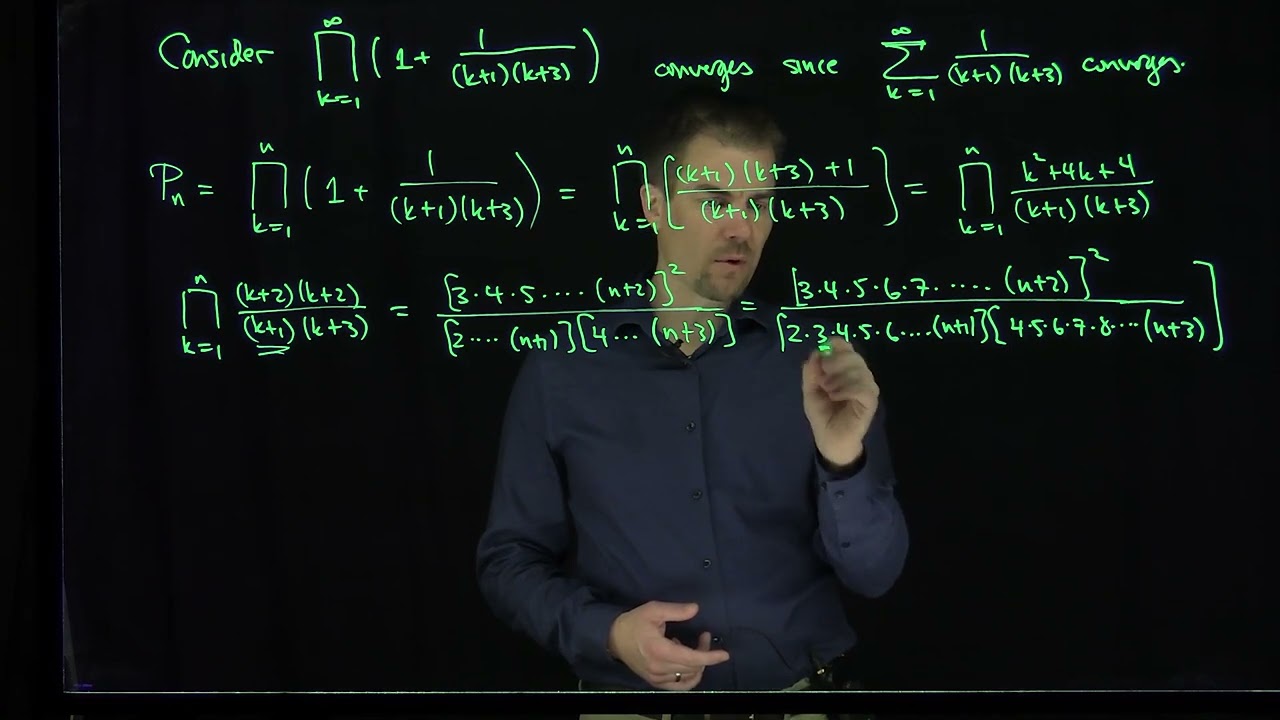 Consider ∏_{k=1}^{∞} (1 + 1/((k+1)(k+3))) converges since ∑_{k=1}^{∞} 1/((k+1)(k+3)) converges.
P_n = ∏_{k=1}^{n} (1 + 1/((k+1)(k+3))) = ∏_{k=1}^{n} [((k+1)(k+3)+1)/((k+1)(k+3))] = ∏_{k=1}^{n} (k²+4k+4)/((k+1)(k+3))
∏_{k=1}^{n} ((k+2)(k+2))/((k+1)(k+3)) = [3·4·5·····(n+2)]²/([2····(n+1)][4···(n+3)]) = [3·4·5·6·7·····(n+2)]²/([2·3·4·5·6····(n+1)][4·5·6·7·8···(n+3)]]